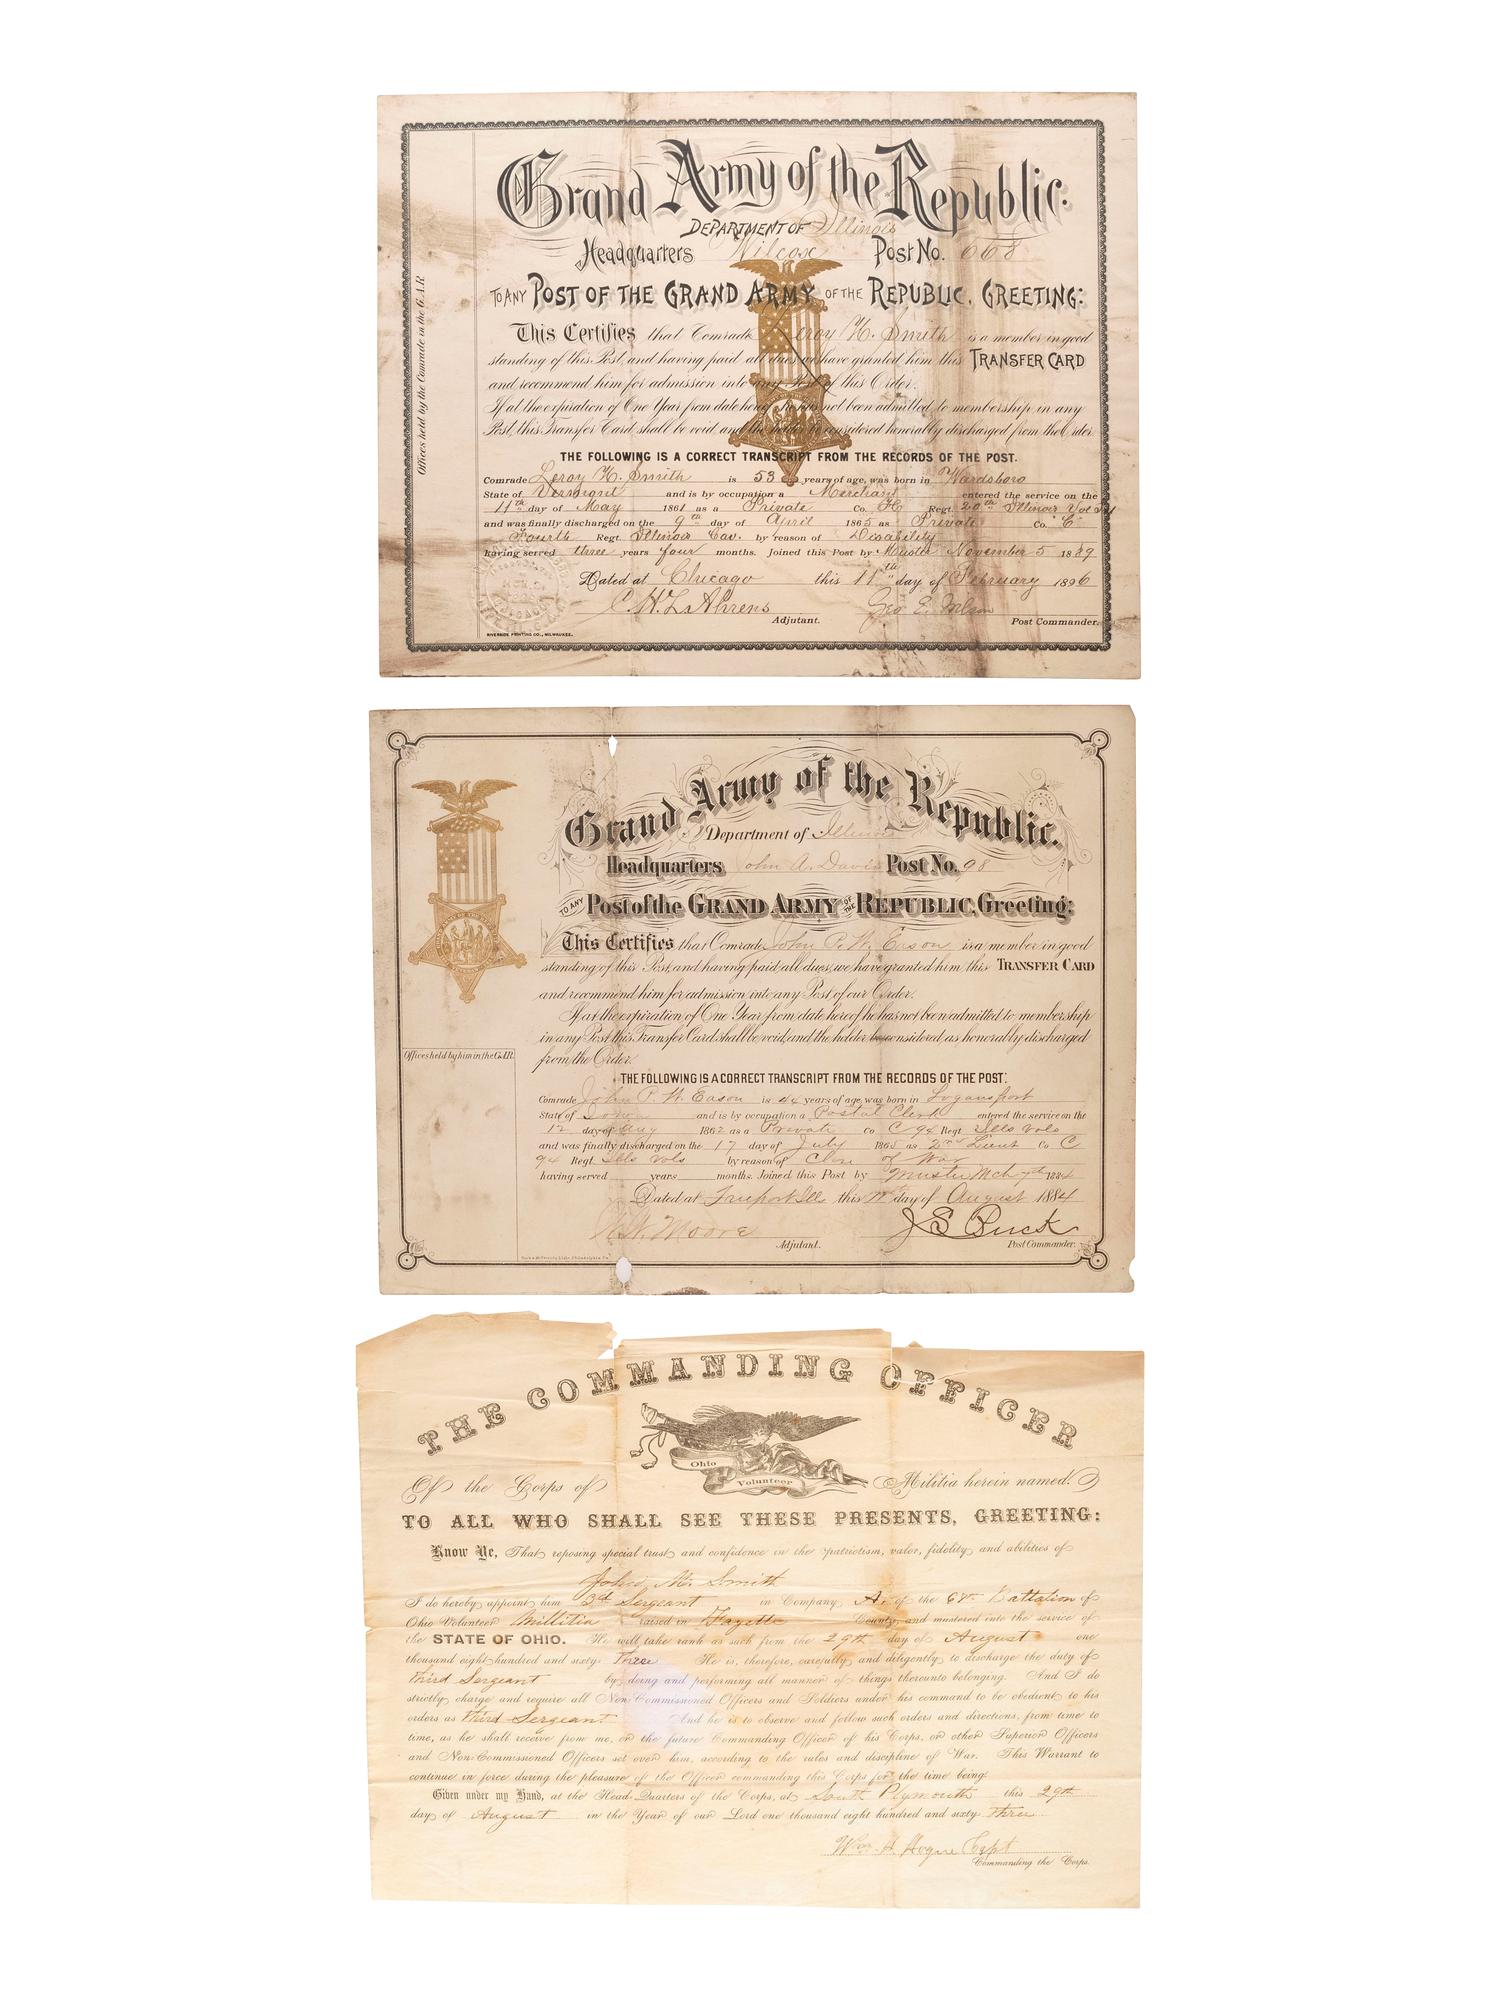 Grand Army of the Republic.
DEPARTMENT OF Illinois
Headquarters Wilcox Post No. 668
TO ANY POST OF THE GRAND ARMY OF THE REPUBLIC, GREETING:
This Certifies that Comrade Leroy H. Smith is a member in good
standing of this Post, and having paid all dues, we have granted him this TRANSFER CARD
and recommend him for admission into any Post of this Order.
If at the expiration of One Year from date hereof he has not been admitted to membership in any
Post, this Transfer Card shall be void, and the holder be considered honorably discharged from the Order.
THE FOLLOWING IS A CORRECT TRANSCRIPT FROM THE RECORDS OF THE POST.
Comrade Leroy H. Smith is 53 years of age, was born in Wardsboro
State of Vermont and is by occupation a Merchant entered the service on the
11th day of May 1861 as a Private Co. H Regt. 20th Illinois Vol
and was finally discharged on the 9th day of April 1865 as Private Co. C
Fourth Regt. Illinois Cav. by reason of Disability
having served three years four months. Joined this Post by Muster November 5 1889
Dated at Chicago this 11th day of February 1896
Adjutant. Post Commander.
RIVERSIDE PRINTING CO., MILWAUKEE.
Offices held by the Comrade in the G.A.R.
Grand Army of the Republic.
Department of Illinois
Headquarters John A. Davis Post No. 98
TO ANY Post of the GRAND ARMY OF THE REPUBLIC, Greeting:
This Certifies that Comrade John P. W. Eason is a member in good
standing of this Post, and having paid all dues, we have granted him this TRANSFER CARD
and recommend him for admission into any Post of our Order.
If at the expiration of One Year from date hereof he has not been admitted to membership
in any Post this Transfer Card shall be void, and the holder be considered, as honorably discharged
from the Order.
Offices held by him in the G.A.R.
THE FOLLOWING IS A CORRECT TRANSCRIPT FROM THE RECORDS OF THE POST:
Comrade John P. W. Eason is 44 years of age, was born in Logansport
State of and is by occupation a Postal Clerk entered the service on the
12 day of Aug 1862 as a Private Co C 94 Regt Ills Vols
and was finally discharged on the 17 day of July 1865 as 2nd Lieut Co C
94 Regt. Ills Vols by reason of Close of War
having served years months. Joined this Post by Muster Mch 7th 1884
Dated at Freeport Ills this day of August 1884
Moore J S Buck
Adjutant. Post Commander.
THE COMMANDING OFFICER
Ohio
Volunteer
Of the Corps of Militia herein named.
TO ALL WHO SHALL SEE THESE PRESENTS, GREETING:
Know Ye, That reposing special trust and confidence in the patriotism, valor, fidelity and abilities of
John M. Smith
I do hereby appoint him 3d Sergeant in Company A, of the 68th Battalion of
Ohio Volunteer Millitia raised in Fayette County, and mustered into the service of
the STATE OF OHIO. He will take rank as such from the 29th day of August one
thousand eight hundred and sixty three He is, therefore, carefully and diligently to discharge the duty of
third Sergeant by doing and performing all manner of things thereunto belonging. And I do
strictly charge and require all Non-Commissioned Officers and Soldiers under his command to be obedient to his
orders as third Sergeant And he is to observe and follow such orders and directions, from time to
time, as he shall receive from me, or the future Commanding Officer of his Corps, or other Superior Officers
and Non-Commissioned Officers set over him, according to the rules and discipline of War. This Warrant to
continue in force during the pleasure of the Officer commanding this Corps for the time being.
Given under my Hand, at the Head-Quarters of the Corps, at South Plymouth this 29th
day of August in the Year of our Lord one thousand eight hundred and sixty three
Wm. H. Hogue Capt
Commanding the Corps.